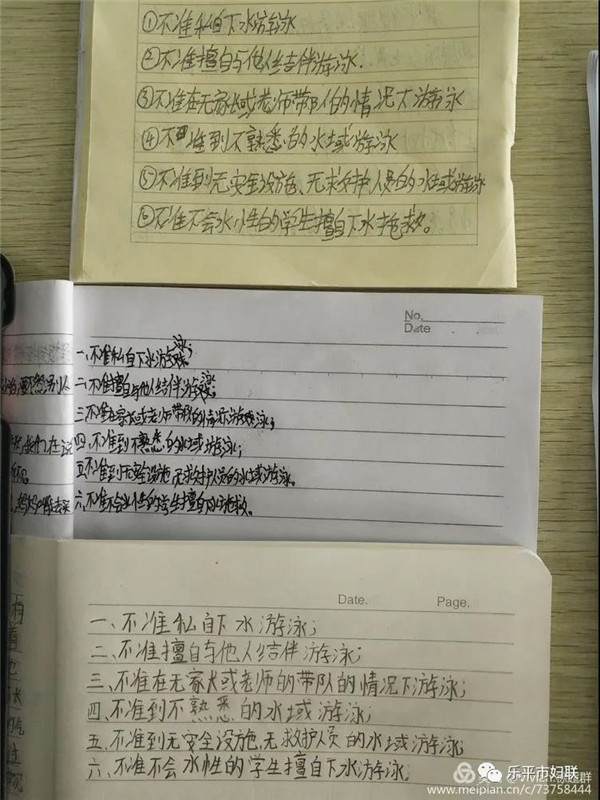 ①不准私自下水游泳
②不准擅自与他人结伴游泳.
③不准在无家长或老师带队的情况下游泳
④不准到不熟悉的水域游泳
⑤不准到无安全设施、无救护人员的水域游泳
⑥不准不会水性的学生擅自下水抢救。
No.
Date
一、不准私自下水游泳;
二、不准擅自与他人结伴游泳;
三、不准在家长或老师带队的情况下游泳;
四、不准到不熟悉的水域游泳;
五不准到无安全设施,无救护人员的水域游泳。
六、不准不会水性的学生擅自下水施救。
Date. Page.
一、不准私自下水游泳;
二、不准擅自与他人结伴游泳;
三、不准在无家长或老师的带队的情况下游泳;
四、不准到不熟悉的水域游泳;
五、不准到无安全设施,无救护人员的水域游泳;
六、不准不会水性的学生擅自下水游泳;
乐平市妇联
www.meipian.cn/c/73758444